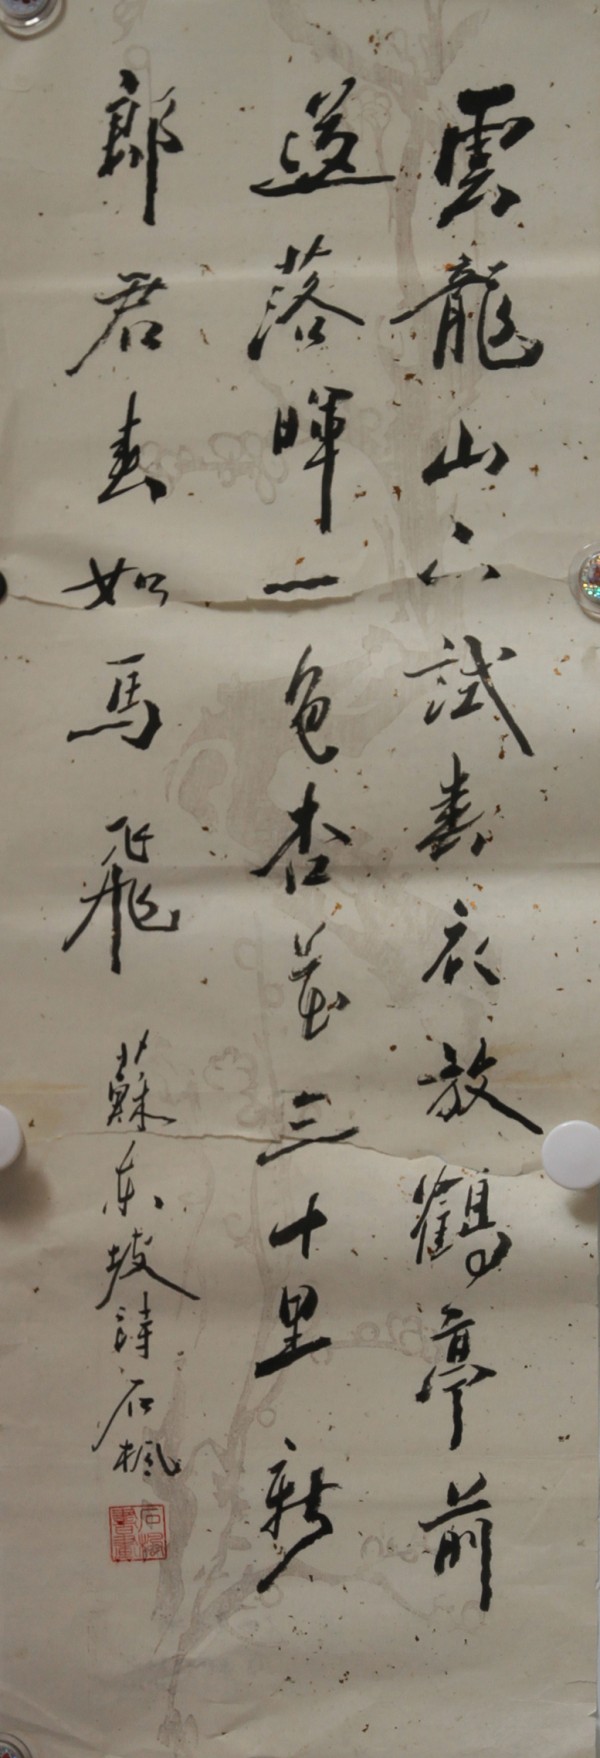 雲龍山下試春衣放鶴亭前
送落暉一色杏花三十里新
郎君去如馬飛
蘇東坡詩石楓
石楓書畫